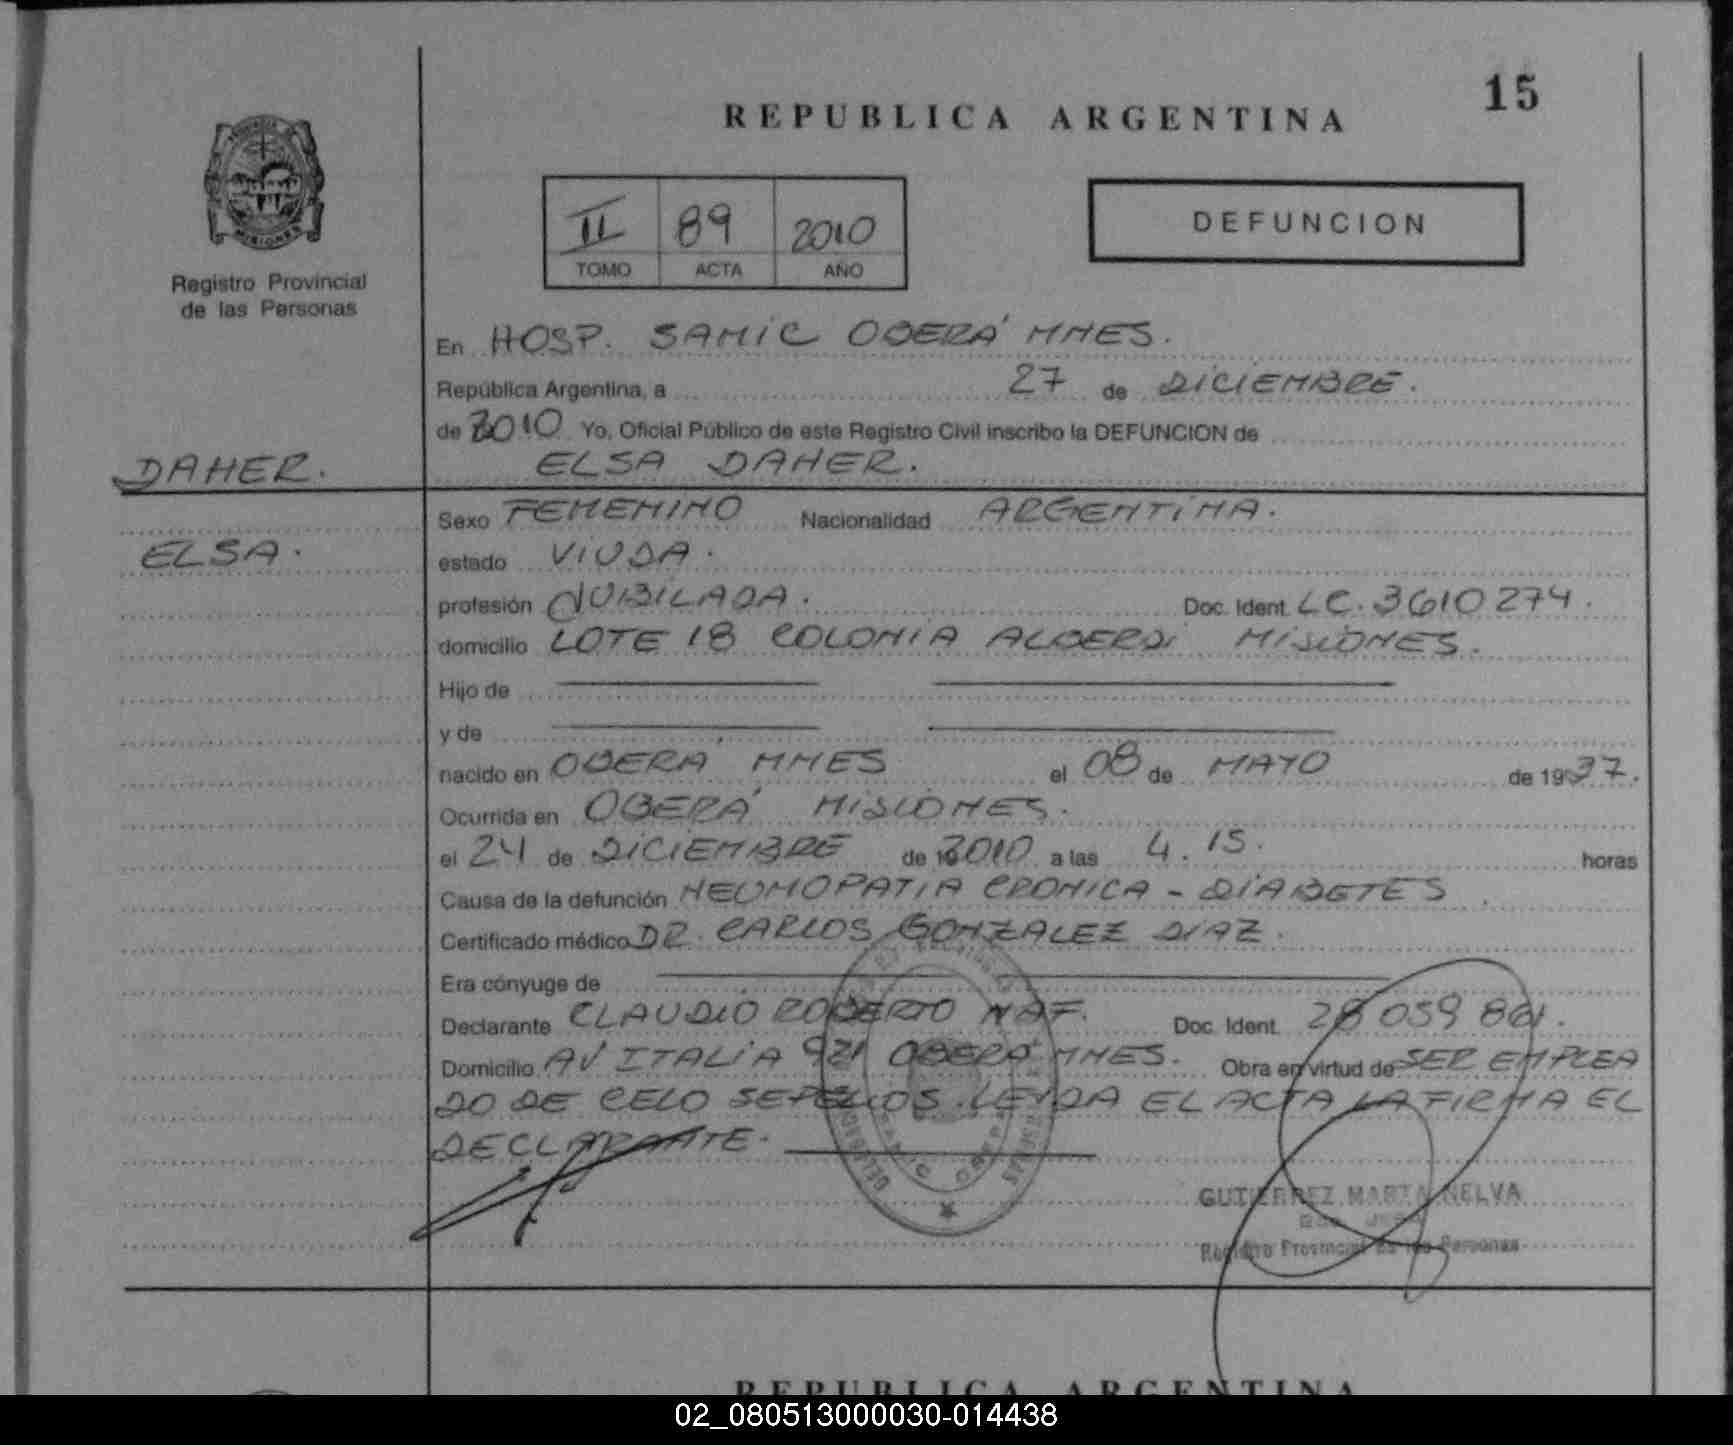 15
REPUBLICA ARGENTINA
MISIONES
Registro Provincial
de las Personas
II 89 2010
TOMO ACTA AÑO
DEFUNCION
En HOSP. SAMIC OBERA' MNES.
República Argentina, a 27 de DICIEMBRE.
de 2010 Yo, Oficial Público de este Registro Civil inscribo la DEFUNCION de
DAHER.
ELSA DAHER.
ELSA.
Sexo FEMENINO Nacionalidad ARGENTINA.
estado VIUDA.
profesión JUBILADA. Doc. Ident. LC. 3610274.
domicilio LOTE 18 COLONIA ALBERDI MISIONES.
Hijo de
y de
nacido en OBERA' MNES el 08 de MAYO de 1937.
Ocurrida en OBERA' MISIONES.
el 24 de DICIEMBRE de 2010 a las 4.15. horas
Causa de la defunción NEUMOPATIA CRONICA - DIABETES.
Certificado médico DR. CARLOS GONZALEZ DIAZ.
Era cónyuge de
Declarante CLAUDIO ROBERTO NAF. Doc. Ident. 28 059 861.
Domicilio AV ITALIA 921 OBERA' MNES. Obra en virtud de SER EMPLEA
DO DE CELO SEPELIOS. LEIDA EL ACTA LA FIRMA EL
DECLARANTE.
GUTIERREZ MARTA NELVA
Registro Provincial de las Personas
REPUBLICA ARGENTINA
02_080513000030-014438